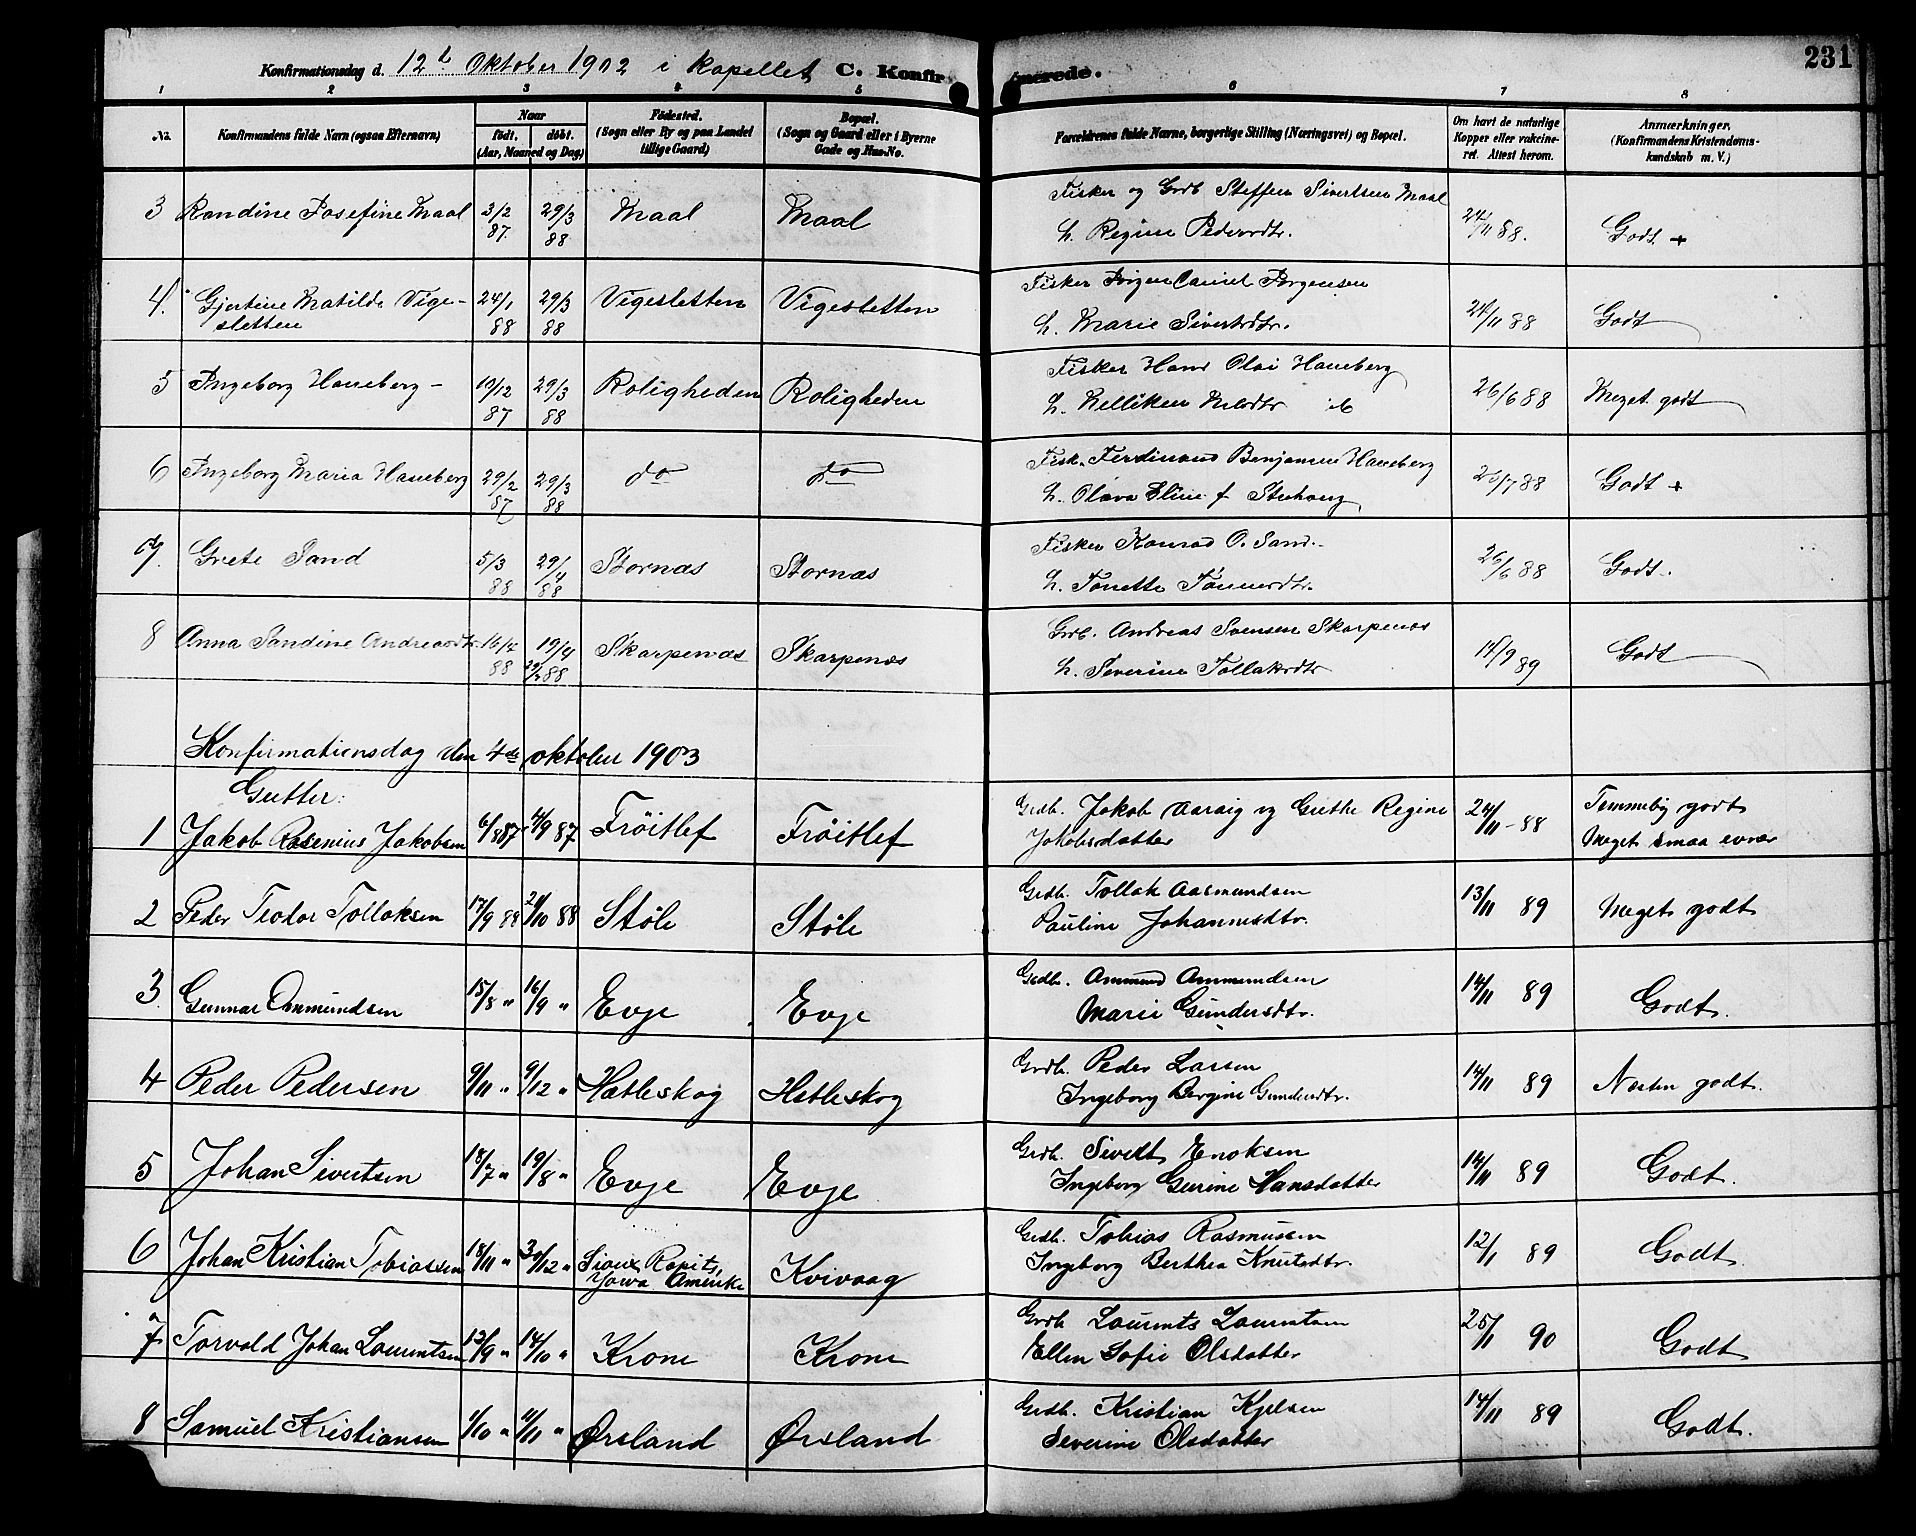 231
Konfirmationsdag d. 12t Oktober 1902 i kapellet C. Konfirmerede.
1 2 3 4 5 6 7 8
No. Konfirmandens fulde Navn (ogsaa Efternavn) Naar født. døbt. (Aar, Maaned og Dag) Fødested. (Sogn eller By og paa Landet tillige Gaard) Bopæl. (Sogn og Gaard eller i Byerne Gade og Hus-No. Forældrenes fulde Navne, borgerlige Stilling (Næringsvei) og Bopæl. Om havt de naturlige Kopper eller vaccineret. Attest herom. Anmærkninger. (Konfirmandens Kristendomskundskab m. V.)
3 Randine Josefine Maal 3/2 87. 29/3 88 Maal Maal Fisker og Grdb Steffen Sivertsen Maal
h. Regine Pedersdtr. 24/11 88. Godt +
4. Gjertine Matilde Vigesletten 24/1 88 29/3 88 Vigesletten Vigesletten Fisker Jørgen Daniel Jørgensen
h. Marie Sivertsdtr. 24/11 88 Godt
5 Ingeborg Haneberg - 19/12 87 29/3 88 Roligheden Roligheden Fisker Hans Olai Haneberg
h. 26/6 88 Meget godt
6 Ingeborg Maria Haneberg 29/2 87 29/3 88 do do Fisk. Ferdinand Benjamin Haneberg
h. Olava Eline f 25/7 88 Godt +
7. Grete Sand 5/3 88 29/4 88 Stornæs Stornæs Fisker Konrad O. Sand.
h. Tonette Tønnesdtr. 26/6 88 Godt.
8 Anna Sandine Andreasdtr. 16/4 88 19/4 88 Skarpenæs Skarpenæs Grdb. Andreas Svensen Skarpenæs
h. Severine Tollaksdtr 14/9 89 Godt
Konfirmationsdag den 4de oktober 1903
Gutter:
1 Jakob Rosenius Jakobsen 6/8 87 4/9 87 Frøitlef Frøitlef Grdb. Jakob Aaraig og Grethe Regine
Jakobsdatter 24/11-88 Temmelig godt
Meget smaa evner
2 Peder Teodor Tollaksen 17/9 88 21/10 88 Støle Støle Grdb. Tollak Aasmundsen
Pauline Johannesdtr. 13/11 89 Meget godt
3 Gunnar Ommundsen 15/8 " 16/9 " Evje Evje Grdb. Ommund Ommundsen
Marie Gundersdtr. 14/11 89 Godt.
4 Peder Pedersen 9/11 " 9/12 " Hetleskog Hetleskog Grdb. Peder Larsen
Ingeborg Bergine Gundersdtr. 14/11 89 Næsten godt.
5 Johan Sivertsen 18/7 " 19/8 " Evje Evje Grdb. Sivert Enoksen
Ingeborg Gurine Hansdatter 14/11 89 Godt.
6 Johan Kristian Tobiassen 18/11 " 30/12 " Sioux Rapits,
Jowa Amerika Kvivaag Grdb. Tobias Rasmussen
Ingeborg Berthea Knutsdtr. 12/1 89 Godt.
7 Torvald Johan Lauritsen 13/9 " 14/10 " Krone Krone Grdb Laurits Lauritsen
Ellen Sofie Olsdatter 25/1 90 Godt.
8 Samuel Kristiansen 1/10 " 11/11 " Ørsland Ørsland Grdb. Kristian Kjelsen
Severine Olsdatter 14/11 89 Godt.